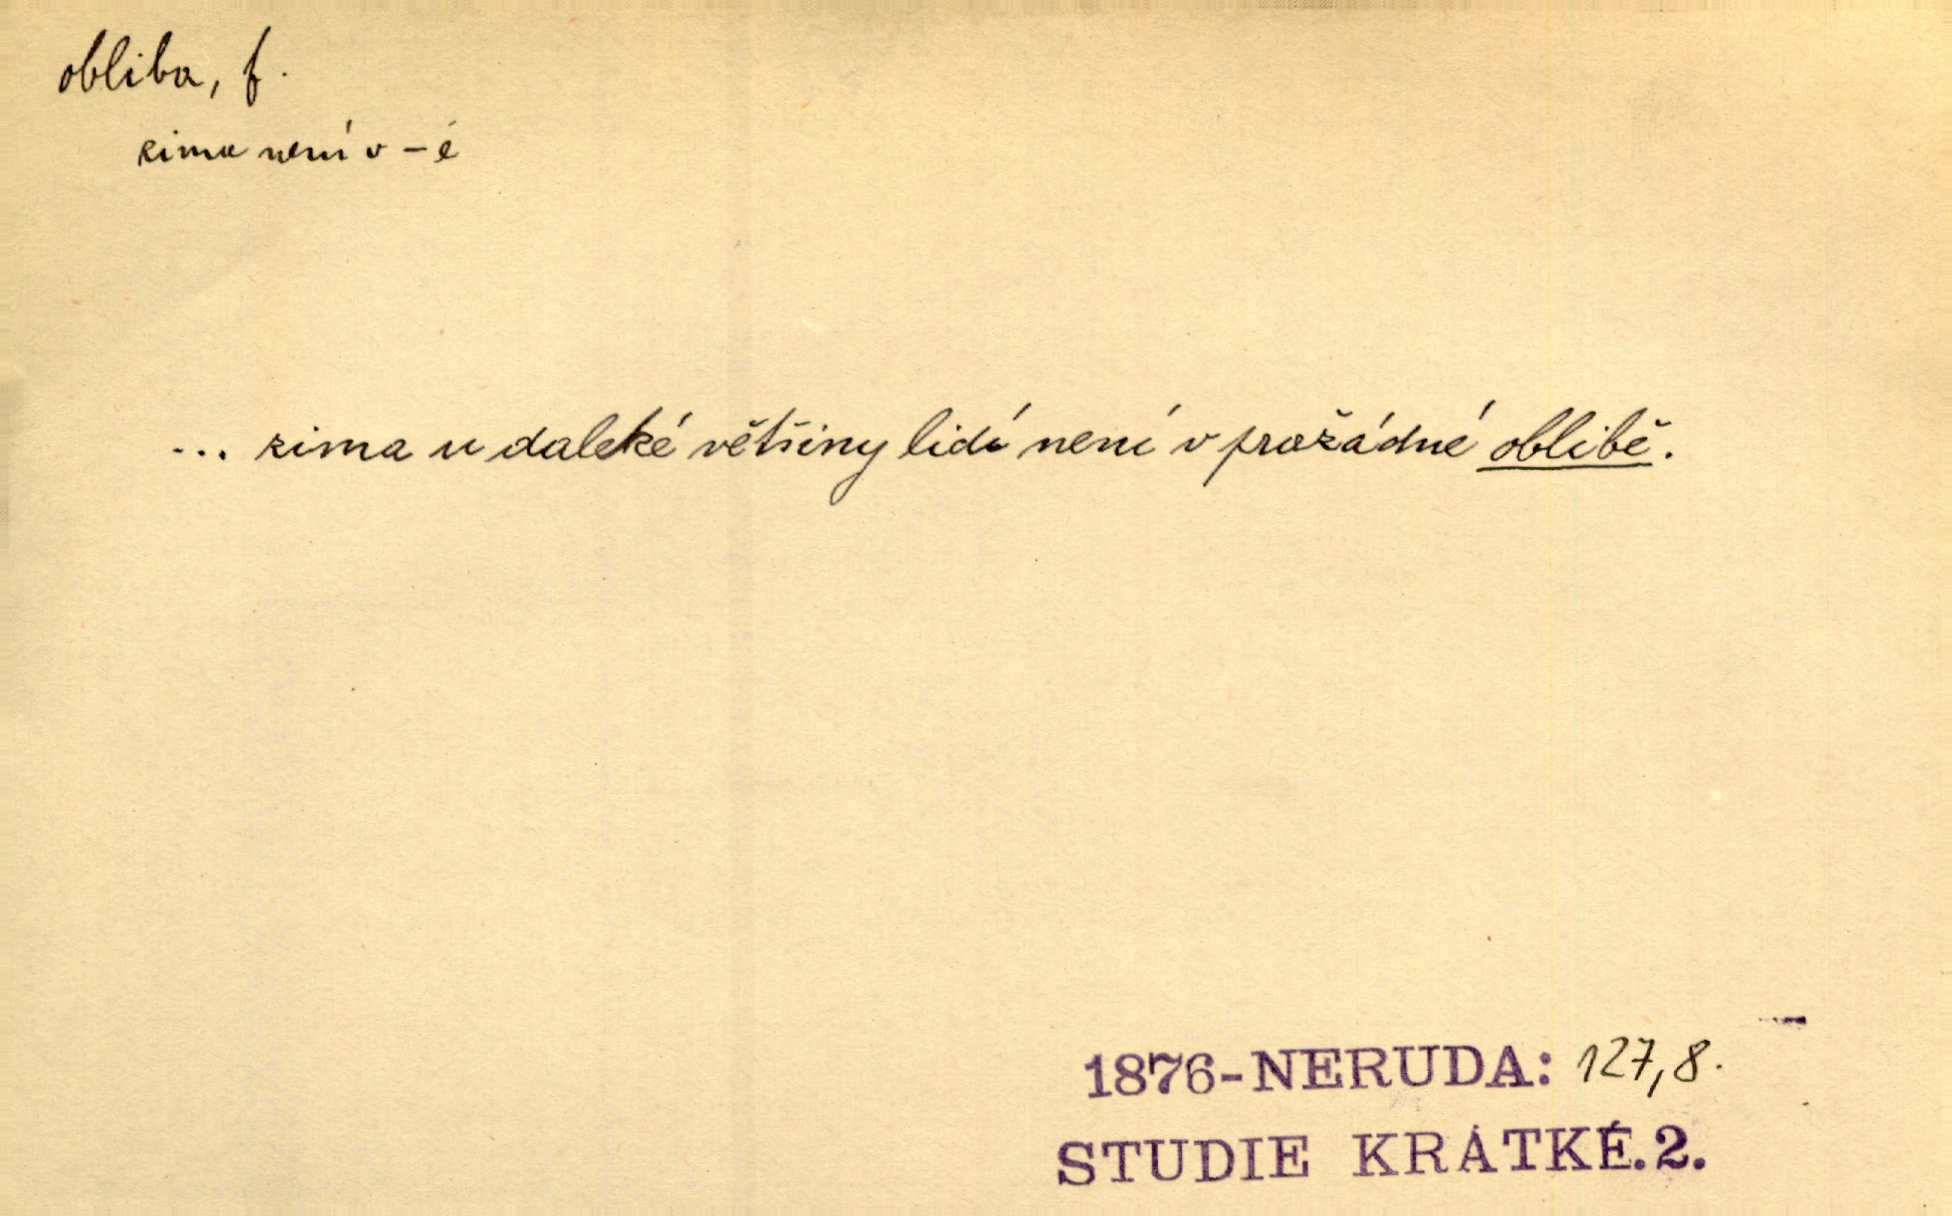 obliba, f.
zima není v – ě
... zima u daleké většiny lidí není v pražádné oblibě.
1876-NERUDA: 127,8.
STUDIE KRÁTKÉ.2.